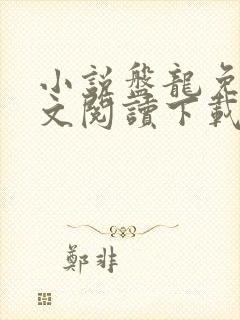 小説盤龍免
文閱讀下載
鄭非